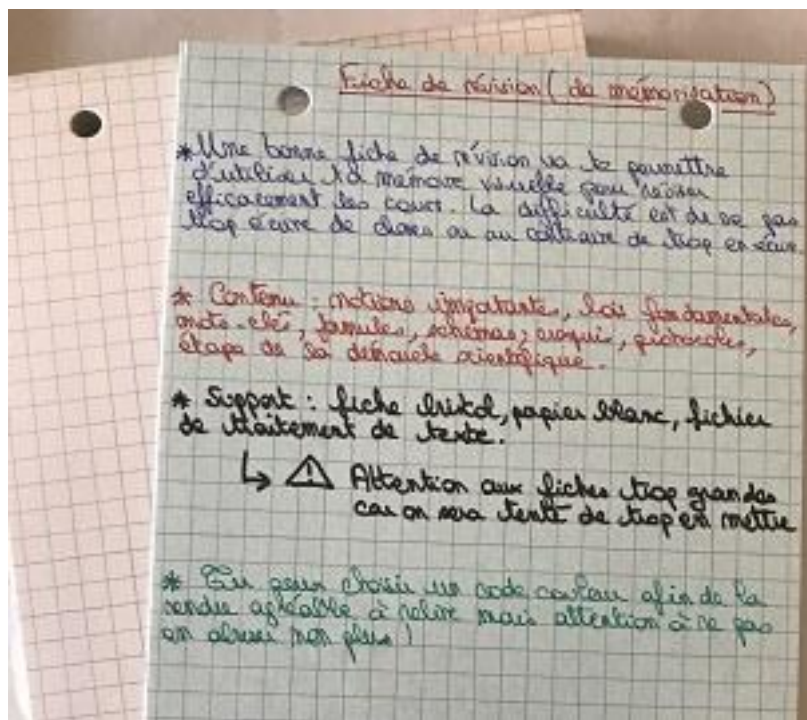 Fiche de révision (de mémorisation)
* Une bonne fiche de révision va te permettre
d'utiliser ta mémoire visuelle pour réviser
efficacement les cours. La difficulté est de ne pas
trop écrire de choses ou au contraire de trop en écrire.
* Contenu : notions importantes, lois fondamentales,
mots-clé, formules, schémas, croquis, protocoles,
étape de la démarche scientifique.
* Support : fiche bristol, papier blanc, fichier
de traitement de texte.
↳ ⚠ Attention aux fiches trop grandes
car on sera tenté de trop en mettre
* Tu peux choisir un code couleur afin de la
rendre agréable à relire mais attention à ne pas
en abuser non plus !